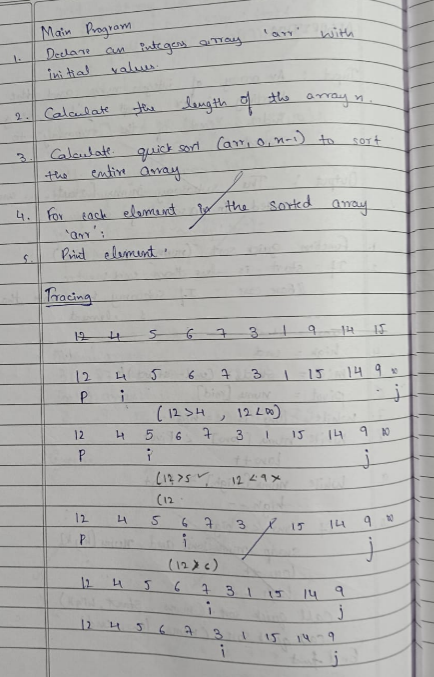 Main Program
1. Declare an integers array 'arr' with
initial values.
2. Calculate the length of the array n.
3. Calculate quick sort (arr, 0, n-1) to sort
the entire array
4. For each element in the sorted array
'arr':
5. Print element.
Tracing
12 4 5 6 7 3 1 9 14 15
12 4 5 6 7 3 1 15 14 9 ∞
P i j
(12>4 , 12<∞)
12 4 5 6 7 3 1 15 14 9 ∞
P i j
(12>5 ✓, 12<9 ×
(12
12 4 5 6 7 3 1 15 14 9 ∞
P i j
(12>6)
12 4 5 6 7 3 1 15 14 9
i j
12 4 5 6 7 3 1 15 14 9
i j